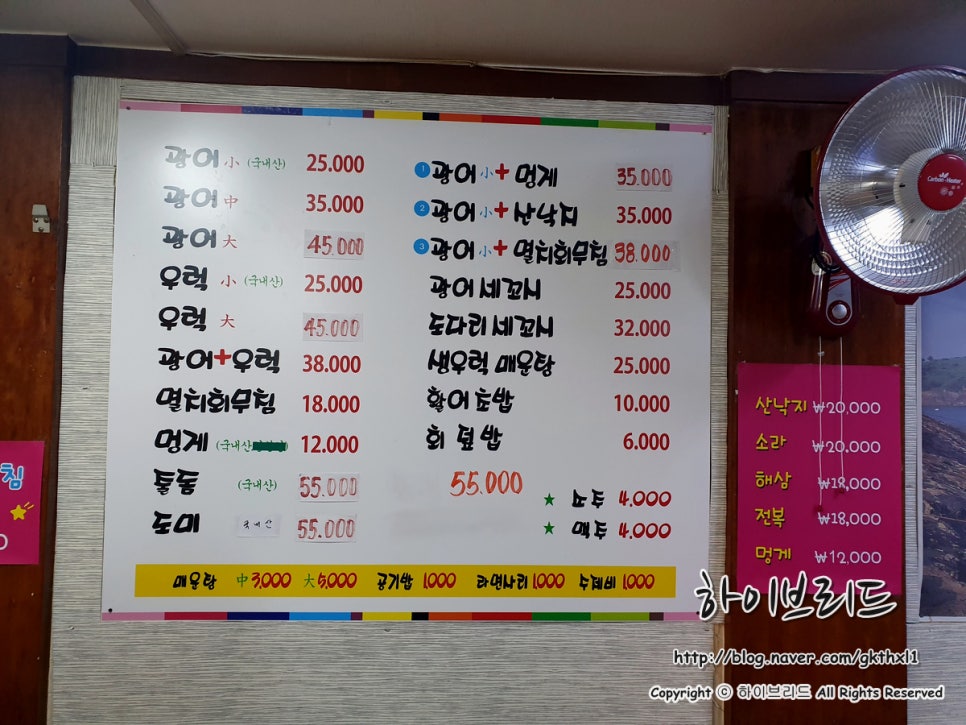 광어 小 (국내산) 25.000
광어 中 35.000
광어 大 45.000
우럭 小 (국내산) 25.000
우럭 大 45.000
광어+우럭 38.000
멸치회무침 18.000
멍게 (국내산) 12.000
돌돔 (국내산) 55.000
도미 국내산 55.000
1 광어 小+ 멍게 35.000
2 광어 小+ 산낙지 35.000
3 광어 小+ 멸치회무침 38.000
광어세꼬시 25.000
도다리세꼬시 32.000
생우럭 매운탕 25.000
활어초밥 10.000
회덮밥 6.000
55.000
★ 소주 4.000
★ 맥주 4.000
매운탕 中3,000 大5,000 공기밥 1,000 라면사리 1,000 수제비 1,000
침
산낙지 ₩20,000
소라 ₩20,000
해삼 ₩18,000
전복 ₩18,000
멍게 ₩12,000
Carbon-Heater
하이브리드
http://blog.naver.com/gkthxl1
Copyright © 하이브리드 All Rights Reserved